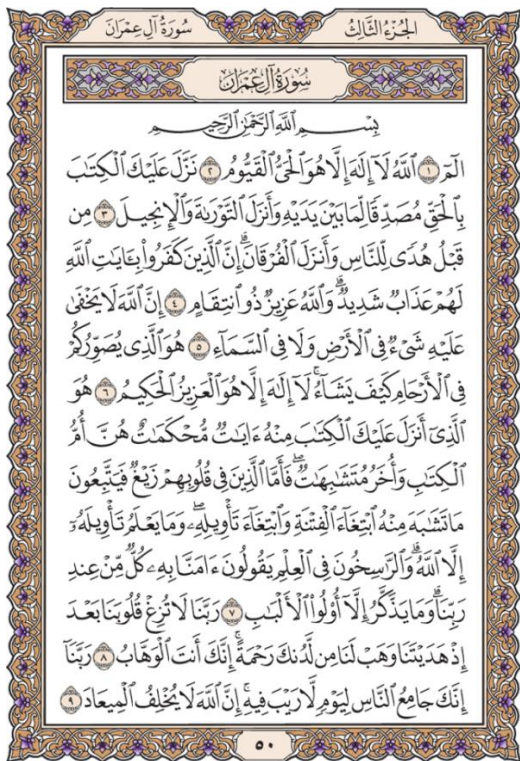 الجُزْءُ الثَّالِثُ
سُورَةُ آلِ عِمْرَانَ
سُورَةُ آلِ عِمْرَانَ
بِسْمِ ٱللَّهِ ٱلرَّحْمَٰنِ ٱلرَّحِيمِ
الٓمٓ ١ ٱللَّهُ لَآ إِلَٰهَ إِلَّا هُوَ ٱلْحَىُّ ٱلْقَيُّومُ ٢ نَزَّلَ عَلَيْكَ ٱلْكِتَٰبَ
بِٱلْحَقِّ مُصَدِّقًا لِّمَا بَيْنَ يَدَيْهِ وَأَنزَلَ ٱلتَّوْرَىٰةَ وَٱلْإِنجِيلَ ٣ مِن
قَبْلُ هُدًى لِّلنَّاسِ وَأَنزَلَ ٱلْفُرْقَانَ ۗ إِنَّ ٱلَّذِينَ كَفَرُوا۟ بِـَٔايَٰتِ ٱللَّهِ
لَهُمْ عَذَابٌ شَدِيدٌ ۗ وَٱللَّهُ عَزِيزٌ ذُو ٱنتِقَامٍ ٤ إِنَّ ٱللَّهَ لَا يَخْفَىٰ
عَلَيْهِ شَىْءٌ فِى ٱلْأَرْضِ وَلَا فِى ٱلسَّمَآءِ ٥ هُوَ ٱلَّذِى يُصَوِّرُكُمْ
فِى ٱلْأَرْحَامِ كَيْفَ يَشَآءُ ۚ لَآ إِلَٰهَ إِلَّا هُوَ ٱلْعَزِيزُ ٱلْحَكِيمُ ٦ هُوَ
ٱلَّذِىٓ أَنزَلَ عَلَيْكَ ٱلْكِتَٰبَ مِنْهُ ءَايَٰتٌ مُّحْكَمَٰتٌ هُنَّ أُمُّ
ٱلْكِتَٰبِ وَأُخَرُ مُتَشَٰبِهَٰتٌ ۖ فَأَمَّا ٱلَّذِينَ فِى قُلُوبِهِمْ زَيْغٌ فَيَتَّبِعُونَ
مَا تَشَٰبَهَ مِنْهُ ٱبْتِغَآءَ ٱلْفِتْنَةِ وَٱبْتِغَآءَ تَأْوِيلِهِۦ ۗ وَمَا يَعْلَمُ تَأْوِيلَهُۥٓ
إِلَّا ٱللَّهُ ۗ وَٱلرَّٰسِخُونَ فِى ٱلْعِلْمِ يَقُولُونَ ءَامَنَّا بِهِۦ كُلٌّ مِّنْ عِندِ
رَبِّنَا ۗ وَمَا يَذَّكَّرُ إِلَّآ أُو۟لُوا۟ ٱلْأَلْبَٰبِ ٧ رَبَّنَا لَا تُزِغْ قُلُوبَنَا بَعْدَ
إِذْ هَدَيْتَنَا وَهَبْ لَنَا مِن لَّدُنكَ رَحْمَةً ۚ إِنَّكَ أَنتَ ٱلْوَهَّابُ ٨ رَبَّنَآ
إِنَّكَ جَامِعُ ٱلنَّاسِ لِيَوْمٍ لَّا رَيْبَ فِيهِ ۚ إِنَّ ٱللَّهَ لَا يُخْلِفُ ٱلْمِيعَادَ ٩
٥٠